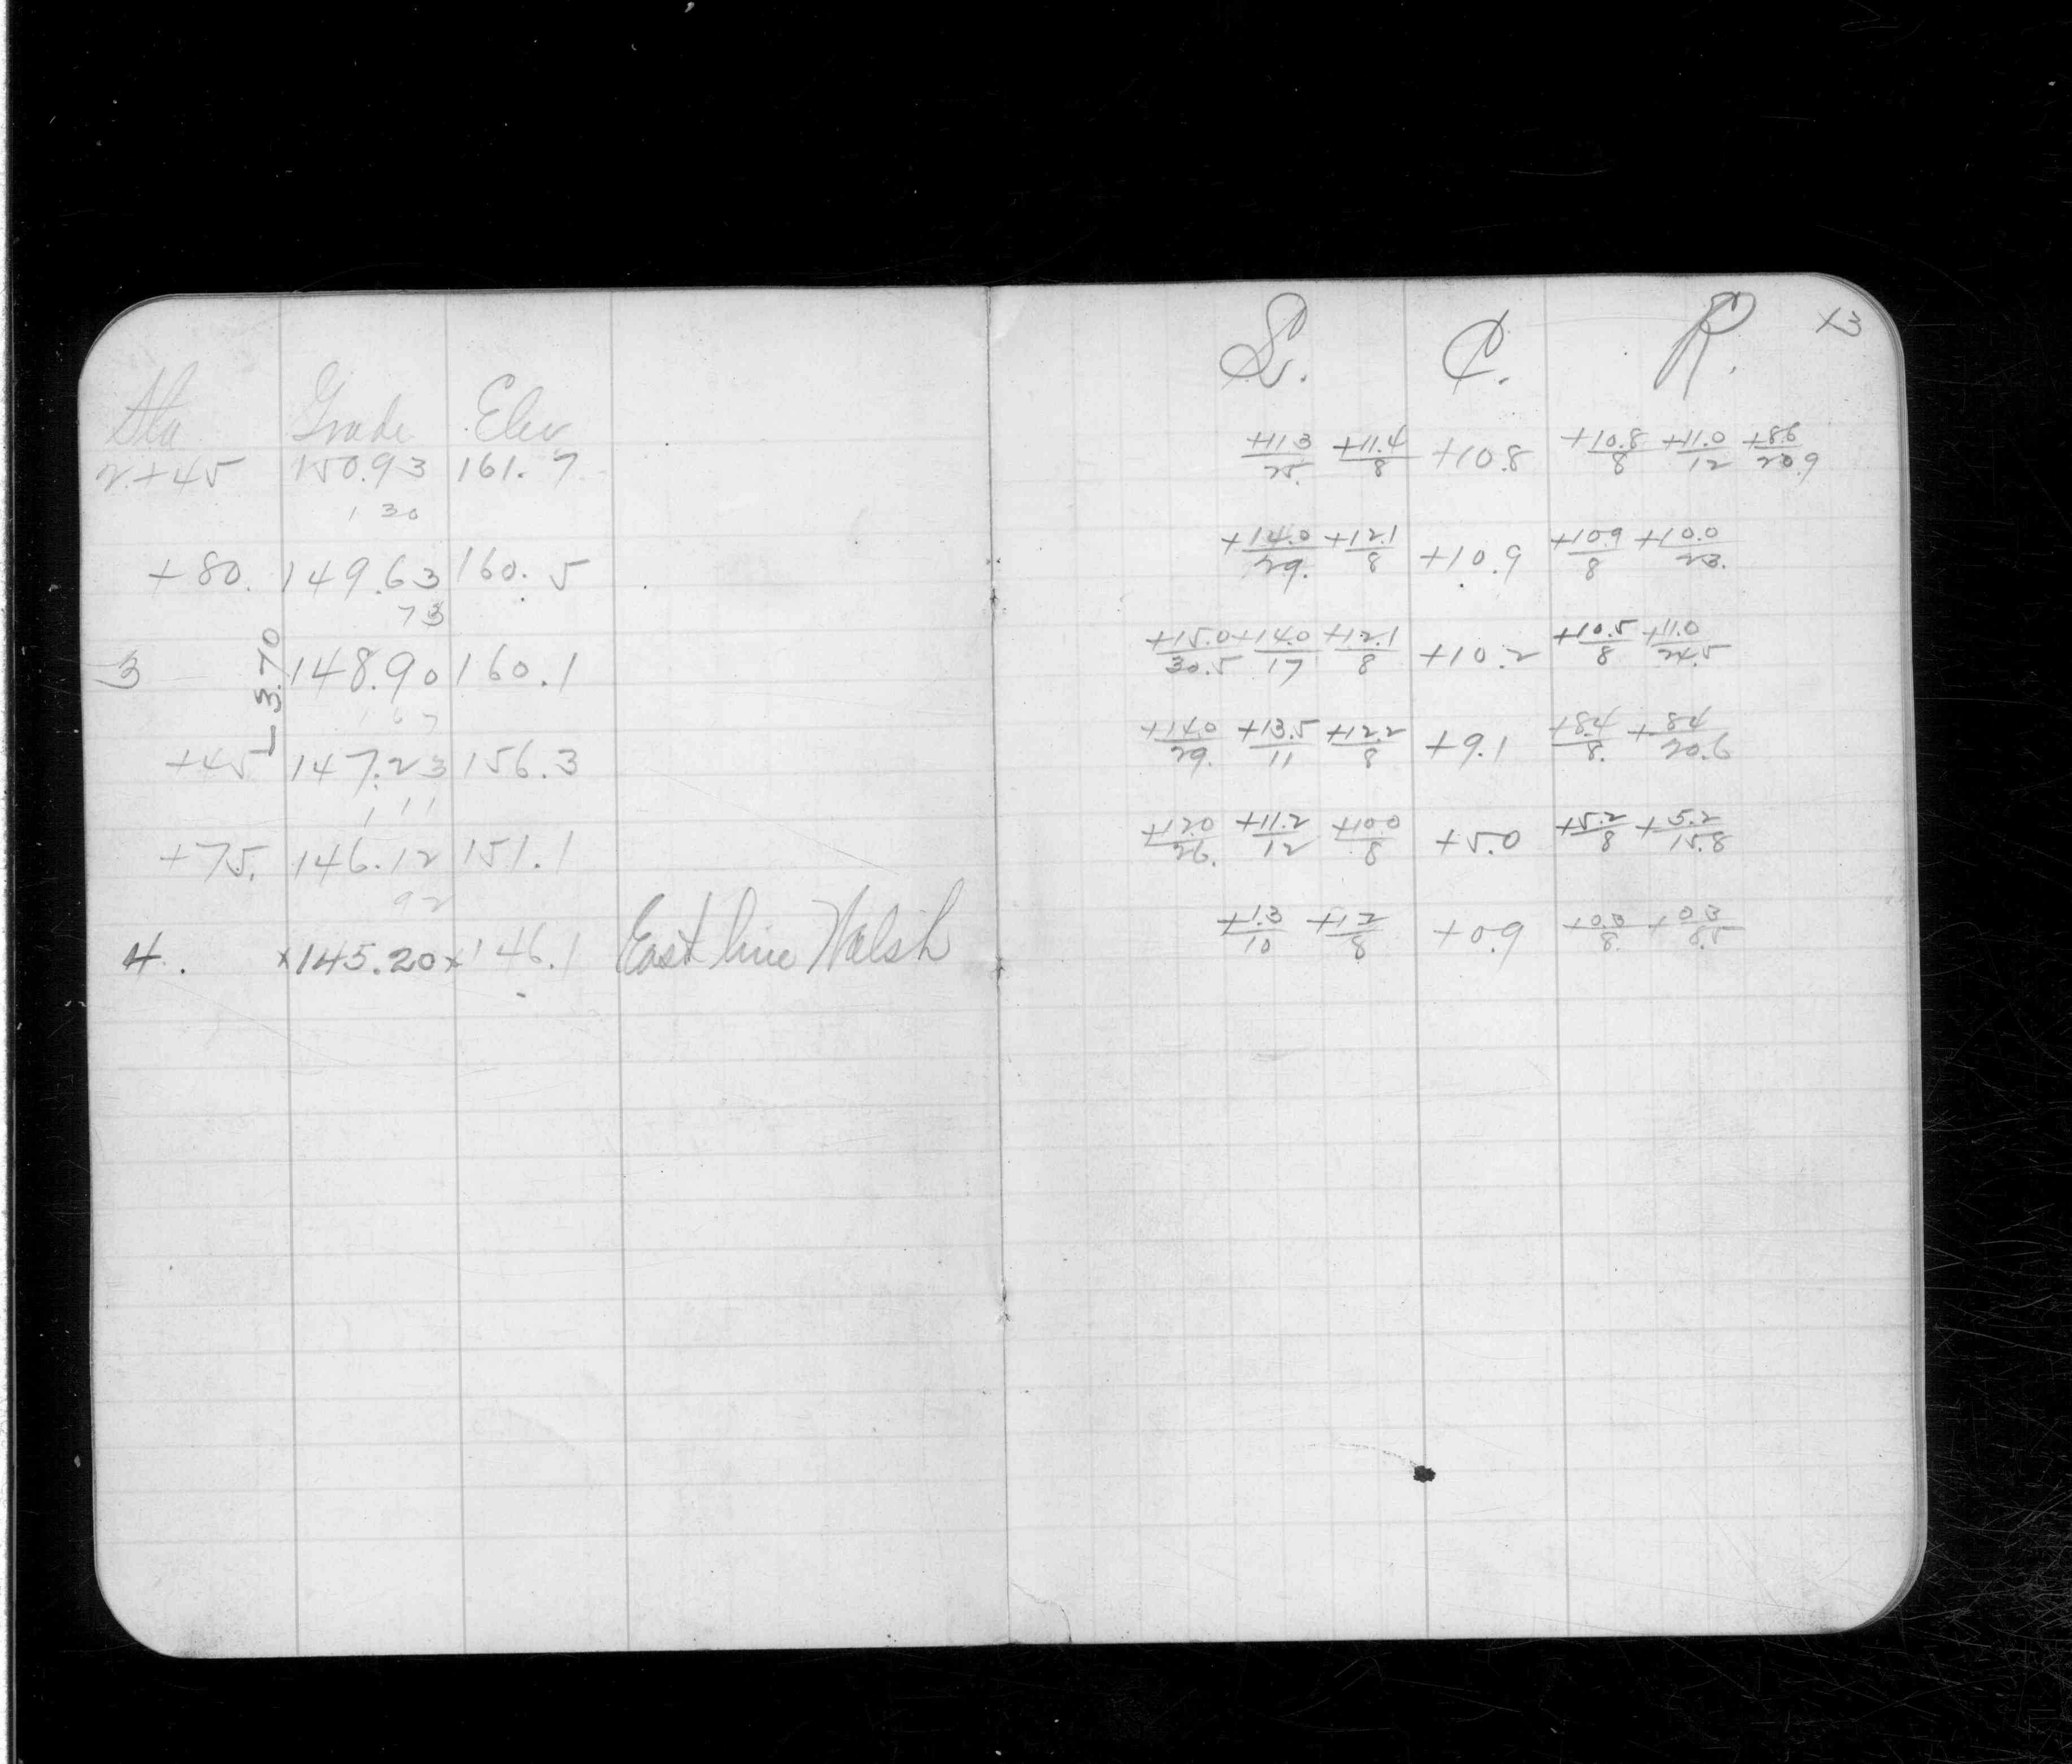 Sta Grade Elev
2+45 150.93 161.7
1 30
+80. 149.63 160.5
73
3 148.90 160.1
-3.70
1 67
+45 147.23 156.3
1 11
+75. 146.12 151.1
92
4. x145.20x 146.1 East line Walsh
L. ₵. R. x3
+11.3/25. +11.4/8 +10.8 +10.8/8 +11.0/12 +8.6/20.9
+14.0/29. +12.1/8 +10.9 +10.9/8 +10.0/23.
+15.0/30.5 +14.0/17 +12.1/8 +10.2 +10.5/8 +11.0/24.5
+14.0/29. +13.5/11 +12.2/8 +9.1 +8.4/8. +8.4/20.6
+12.0/26. +11.2/12 +10.0/8 +5.0 +5.2/8 +5.2/15.8
+1.3/10 +1.2/8 +0.9 +0.3/8. +0.3/8.5